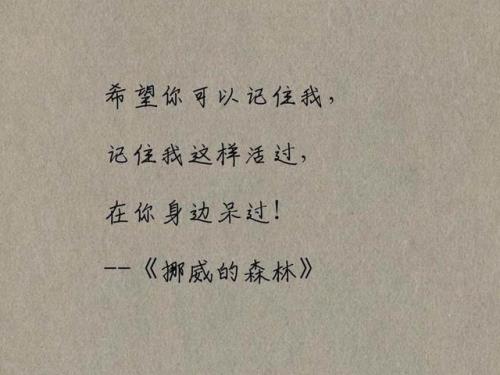 希望你可以记住我，
记住我这样活过，
在你身边呆过！
--《挪威的森林》